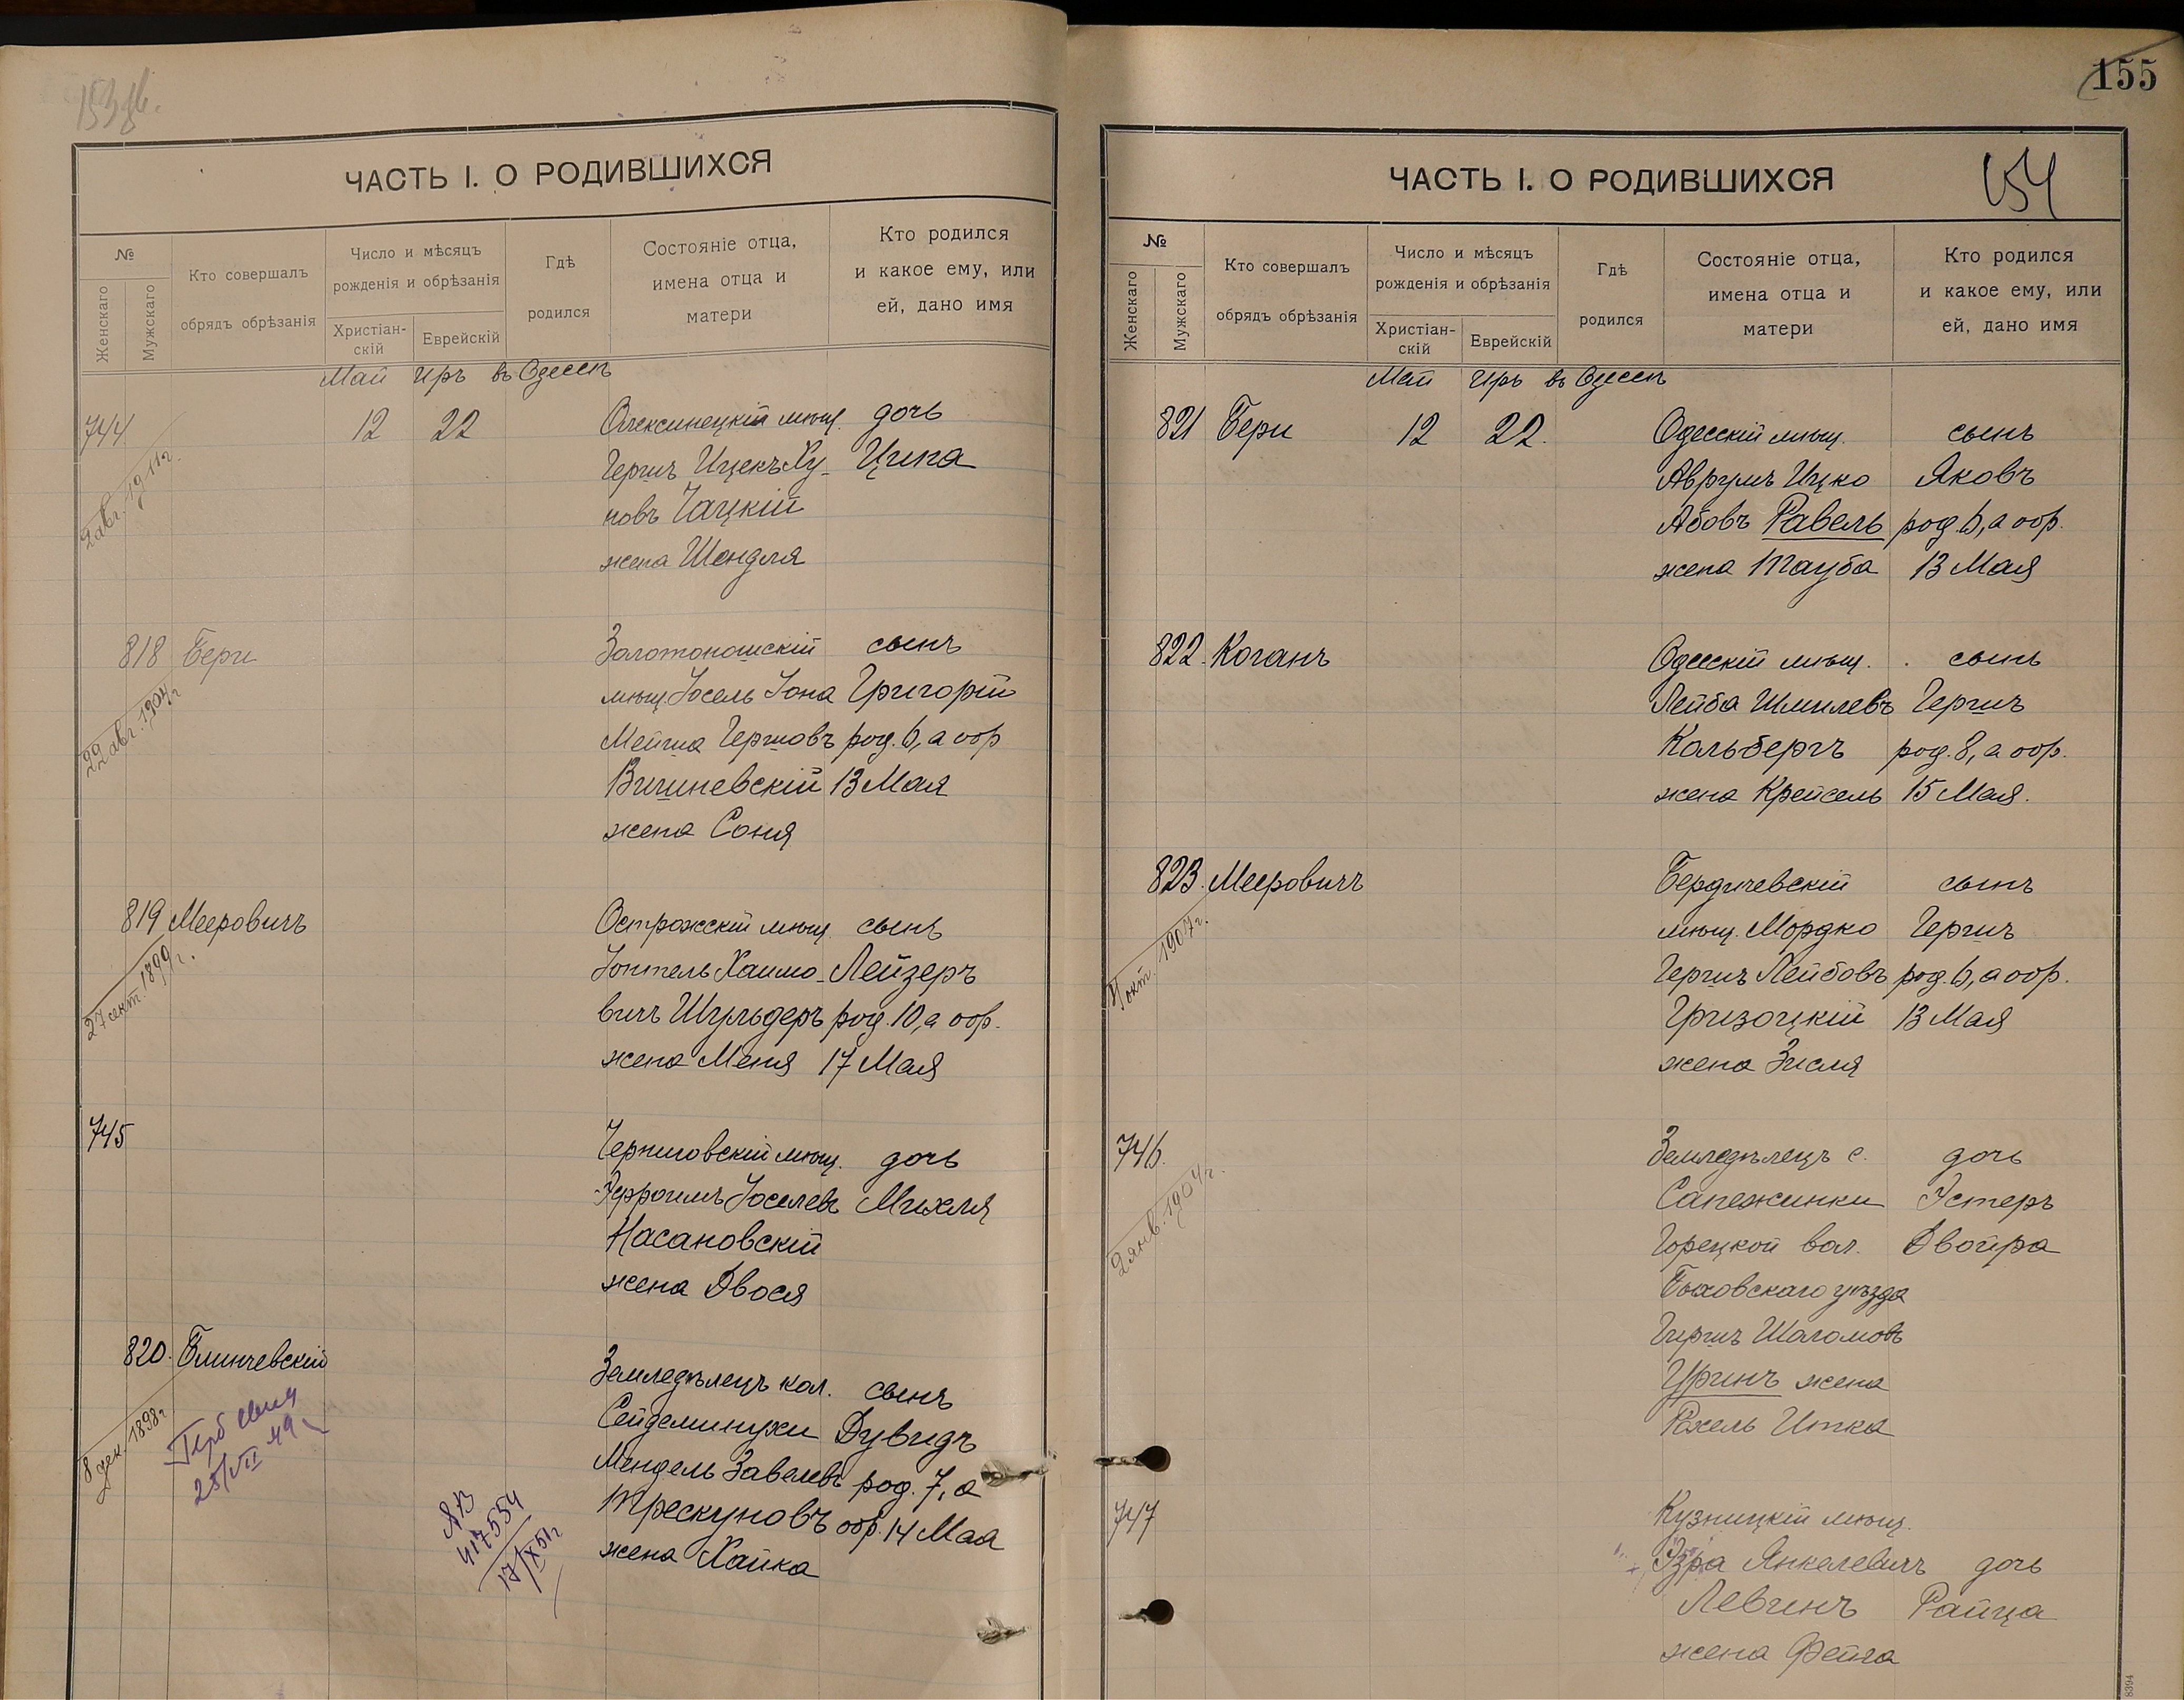 153 об.
ЧАСТЬ I. О РОДИВШИХСЯ
№
Женскаго
Мужскаго
Кто совершалъ
обрядъ обрѣзанія
Число и мѣсяцъ
рожденія и обрѣзанія
Христіан-
скій
Еврейскій
Гдѣ
родился
Состояніе отца,
имена отца и
матери
Кто родился
и какое ему, или
ей, дано имя
Май Иръ въ Одессѣ
744 12 22 Олексинецкій мѣщ. дочь
2 авг. 1911 г.
Гершъ Ицекъ Ху- Ципа
новъ Чацкій
жена Шендля
818 Бери Золотоношскій сынъ
22 авг. 1904 г.
мѣщ. Іосель Іона Григорій
Мейша Гершовъ род. 6, а обр
Вишневскій 13 Мая
жена Соня
819 Мееровичъ Острожскій мѣщ. сынъ
27 сент. 1899 г.
Іонтель Хаимо- Лейзеръ
вичъ Шульдеръ род. 10, а обр.
жена Меня 17 Мая
745 Черниговскій мѣщ. дочь
Эфроимъ Іоселевъ Михля
Насановскій
жена Двося
820. Блинчевскій Земледѣлецъ кол. сынъ
8 дек. 1898 г
25/VII 49
Сейдеминухи Дувидъ
Мендель Завелевъ род. 7, а
Трескуновъ обр. 14 Мая
жена Хайка
АВ
417554
17/X 51 г
155
154
ЧАСТЬ I. О РОДИВШИХСЯ
№
Женскаго
Мужскаго
Кто совершалъ
обрядъ обрѣзанія
Число и мѣсяцъ
рожденія и обрѣзанія
Христіан-
скій
Еврейскій
Гдѣ
родился
Состояніе отца,
имена отца и
матери
Кто родился
и какое ему, или
ей, дано имя
Май Иръ въ Одессѣ
821 Бери 12 22. Одесскій мѣщ. сынъ
Аврумъ Ицко Яковъ
Абовъ Равель род. 6, а обр.
жена Тауба 13 Мая
822. Коганъ Одесскій мѣщ. сынъ
Лейба Шмилевъ Гершъ
Кольбергъ род. 8, а обр.
жена Крейсель 15 Мая.
823. Мееровичъ Бердичевскій сынъ
окт. 1907 г.
мѣщ. Мордко Гершъ
Гершъ Лейбовъ род. 6, а обр.
Гризоцкій 13 Мая
жена Зисля
746. Земледѣлецъ с. дочь
2 янв. 1904 г.
Сапежинки Эстеръ
Горецкой вол. Двойра
Быховскаго уѣзда
Гиршъ Шаломовъ
Уринъ жена
Рохель Итка
747 Кузницкій мѣщ.
Эзра Янкелевичъ дочь
Левинъ Райца
жена Фейга
8394